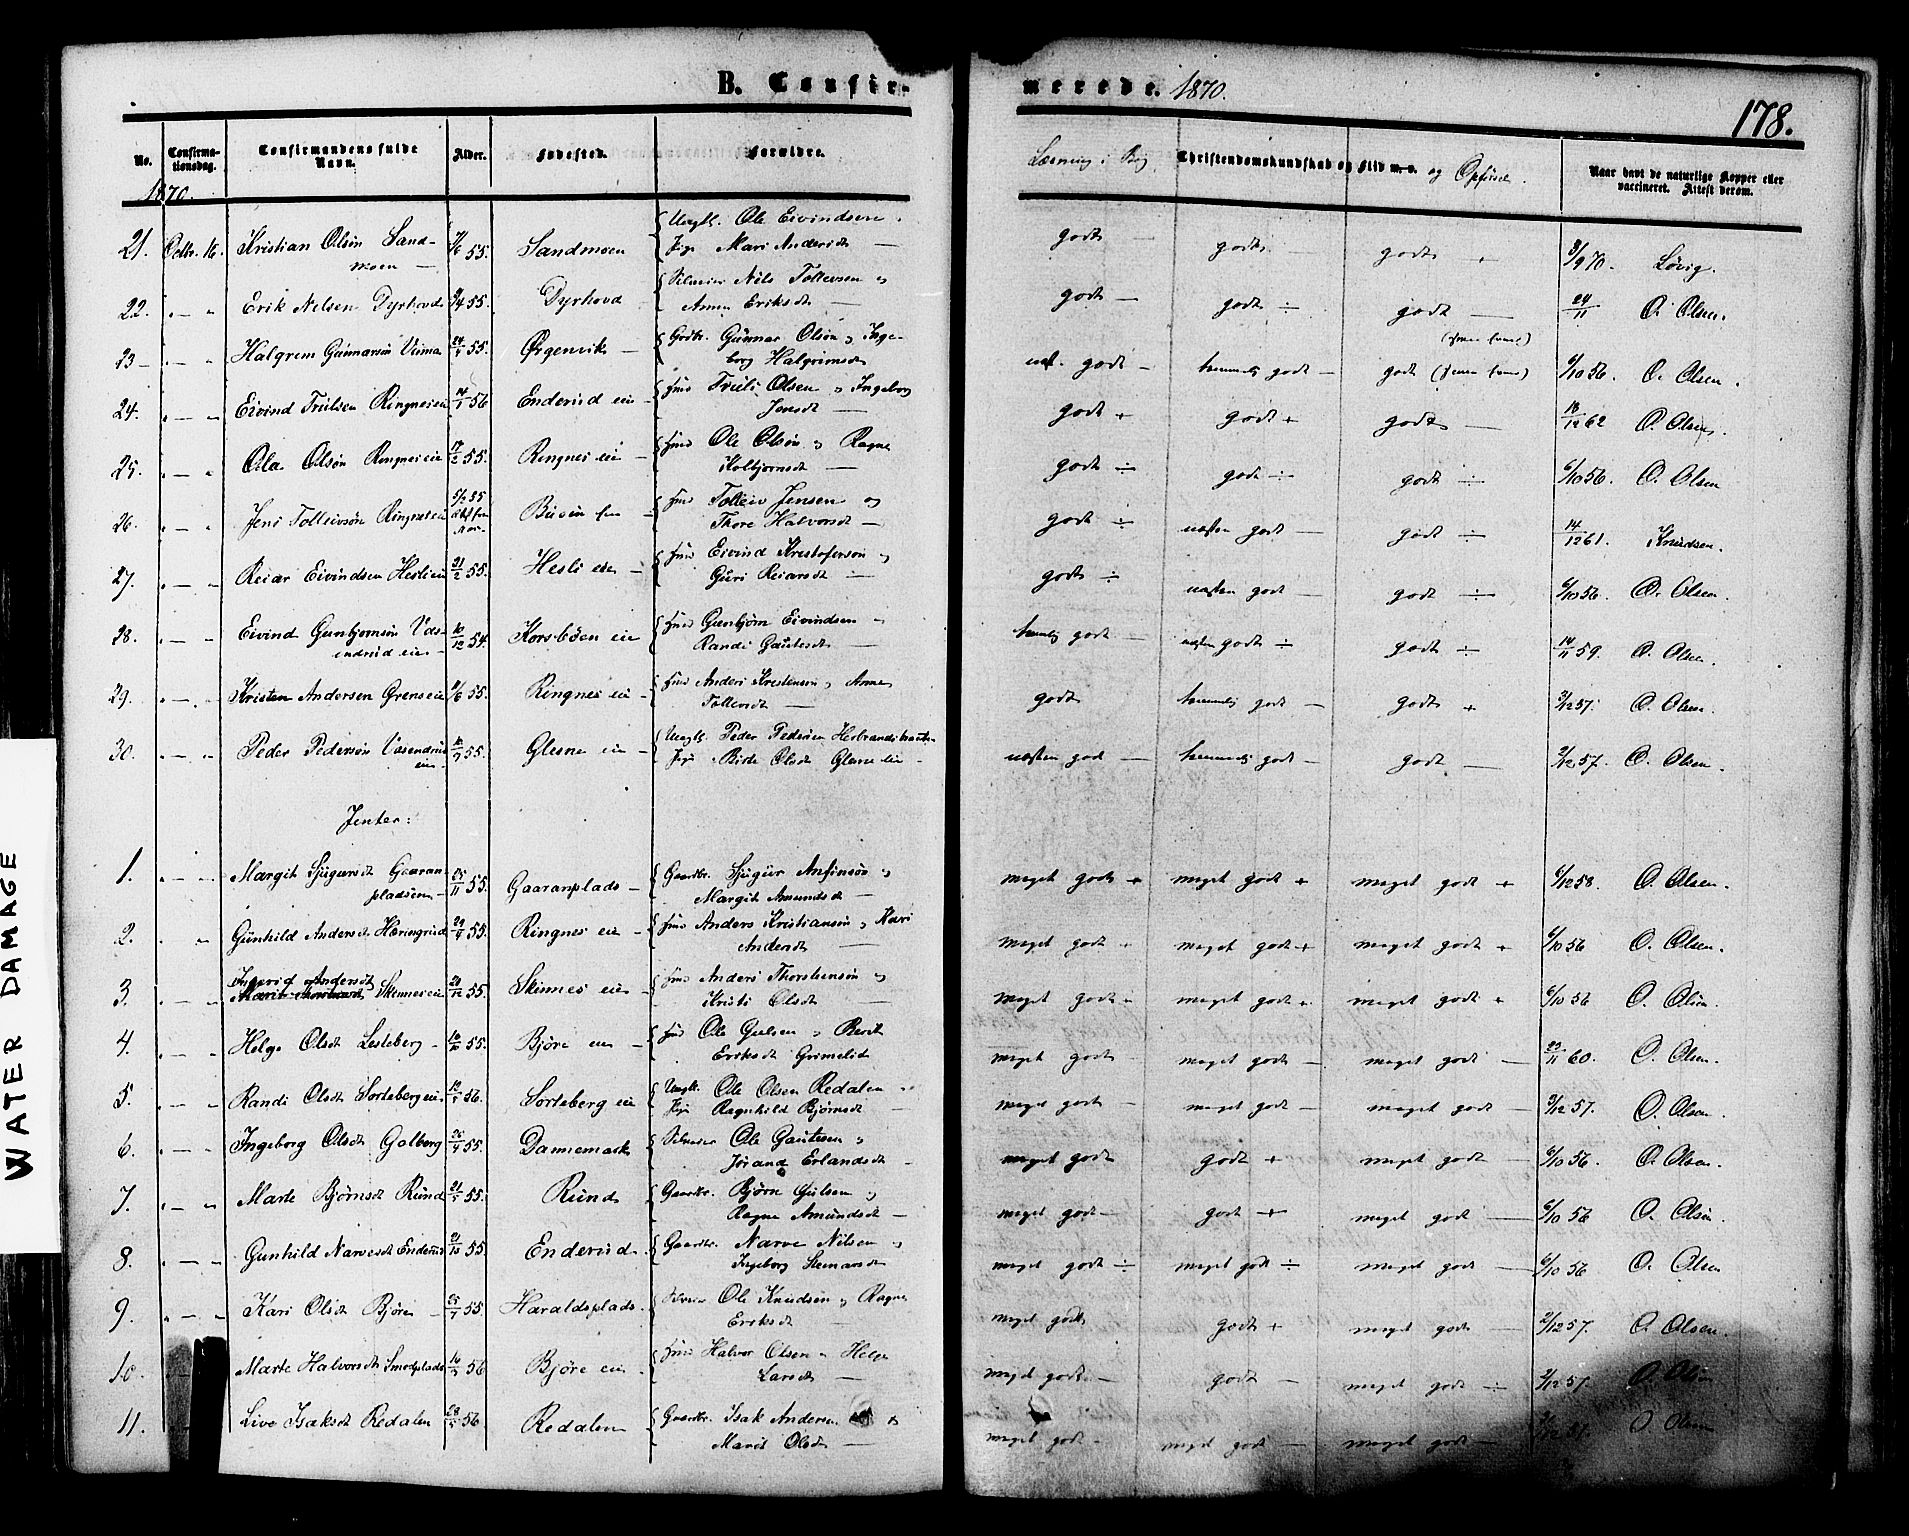 B. Confirmerede. 1870.
178.
No. Confirmationsdag. Confirmandens fulde Navn. Alder. Fødested. Forældre. Læsning i Bog Christendomskundskab og Flid m. v. og Opførsel. Naar havt de naturlige Kopper eller vaccineret. Attest derom.
1870.
21. Octbr. 16. Kristian Olsøn Sandmoen — 55. Sandmoen Ungk. Ole Eivindsen Pige Mari Andersdt — godt — godt — godt + 8/9 70. Løvig.
22. " — " Erik Nelsen Dyrhovd 55. Dyrhovd Selveier Nils Tollevsen og Anne Eriksdt — godt — godt ÷ godt — 24/11 O. Olsen.
23 — " — " Halgrem Gunnarsøn 55. Ørgenvik — Gdbr. Gunnar Olsøn og Ingeborg Halgrimsdt godt — temmelig godt — godt 6/10 56. O. Olsen.
24. " — " Eivind Trulsen Ringnes eie 56 Enderud eie — Huus Truls Olsen og Ingeborg Jensdt — godt + godt + godt — 18/12 62 O. Olsen.
25. " — " Ola Olsøn Ringnes eie 17/2 55. Ringnes eie — Huus Ole Olsøn og Ragne Kolbjørnsdt — godt ÷ godt ÷ godt ÷ 6/10 56. O. Olsen
26. " — " Jens Tolleivsøn Ringnes eie Huus Tolleiv Jensen og Thore Halvorsdt — godt ÷ næsten godt — godt ÷ 14/12 61. Knudsen.
27. " — " Reiar Eivindsen Hesli eie 21/2 55. Hesli eie — Huus Eivind Kristofersøn og Guri Reiarsdt — godt ÷ næsten godt — godt ÷ 6/10 56. O. Olsen.
28. " — " Eivind Gunbjørnsøn Vasendrud eie — 10/12 54. Korsbøen eie Huus Gunbjørn Eivindsen og Randi Gautesdt — temmelig godt — næsten godt ÷ godt ÷ 14/11 59. O. Olsen.
29. " — " Kristen Andersen Grønseie 55. Ringnes eie — Huus Anders Kristensøn og Anne Tollevsdt — godt temmelig godt — godt + 2/12 57. O. Olsen.
30. " — " Peder Pedersøn Vasendrud eie — 55. Glesne eie — Ungk. Peder Pedersen Pige Birte Olsdt Glesne eie — næsten godt — temmelig godt — godt — 2/12 57. O. Olsen.
Jenter:
1. " — " Margit Sjugursdt Gaaranpladsen — 25/11 55. Gaaranplads — Gaardbr. Sjugur Anfinsøn og Margit Amundsdt — meget godt + meget godt + meget godt + 6/12 58. O. Olsen.
2. " — " Gunhild Andersdt Hæringrud 55. Ringnes eie — Huus Anders Kristiansøn og Kari Andersdt — meget godt + meget godt + meget godt + 6/10 56 O. Olsen.
3. " — " Ingerid Andersdt Skinnes eie 55. Skinnes eie — Huus Anders Thorstensøn og Kristi Olsdt — meget godt + meget godt + meget godt + 6/10 56 O. Olsøn.
4. " — " Helge Olsdt Lesteberg — 55. Bjøre eie — Huus Ole Gulsen og Berit Eriksdt Grimelid meget godt meget godt — meget godt — 23/11 60. O. Olsen.
5. " — " Randi Olsdt Sorteberg eie 56. Sorteberg eie Ungk. Ole Olsen Redalen Pige Ragnhild Bjørnsdt — meget godt — meget godt — meget godt — 2/12 57. O. Olsen.
6. " — " Ingeborg Olsdt Golberg 55. Dannemark Selveier Ole Gautesen og Jørand Erlandsdt — meget godt godt + meget godt — 6/10 56. O. Olsen.
7. " — " Marte Bjørnsdt Rund 55. Rund Gaardbr. Bjørn Gulsen og Ragne Amundsdt — meget godt — godt + meget godt — 6/10 56 O. Olsøn
8. " — " Gunhild Narvesdt Enderud 21/10 55. Enderud. Gaardbr. Narve Nilsen og Ingeborg Steinarsdt meget godt ÷ meget godt ÷ meget godt — 6/10 56 O. Olsen
9. " — " Kari Olsdt Bjøre — 55. Haraldsplads. Selveier Ole Knudsen og Ragne Eriksdt — meget godt godt + meget godt — 2/12 57. O. Olsen.
10. Marte Halvorsdt 56 Bjøre eie. Huus Halvor Olsen og Helge Larsdt — meget godt — godt — meget godt ÷ 2/12 57. O. Olsøn
11. Live Isaksdt Redalen 56 Redalen Gaardbr. Isak Andersen og Marit Olsdt — meget godt — meget godt — meget godt — 57. O. Olsen
WATER DAMAGE